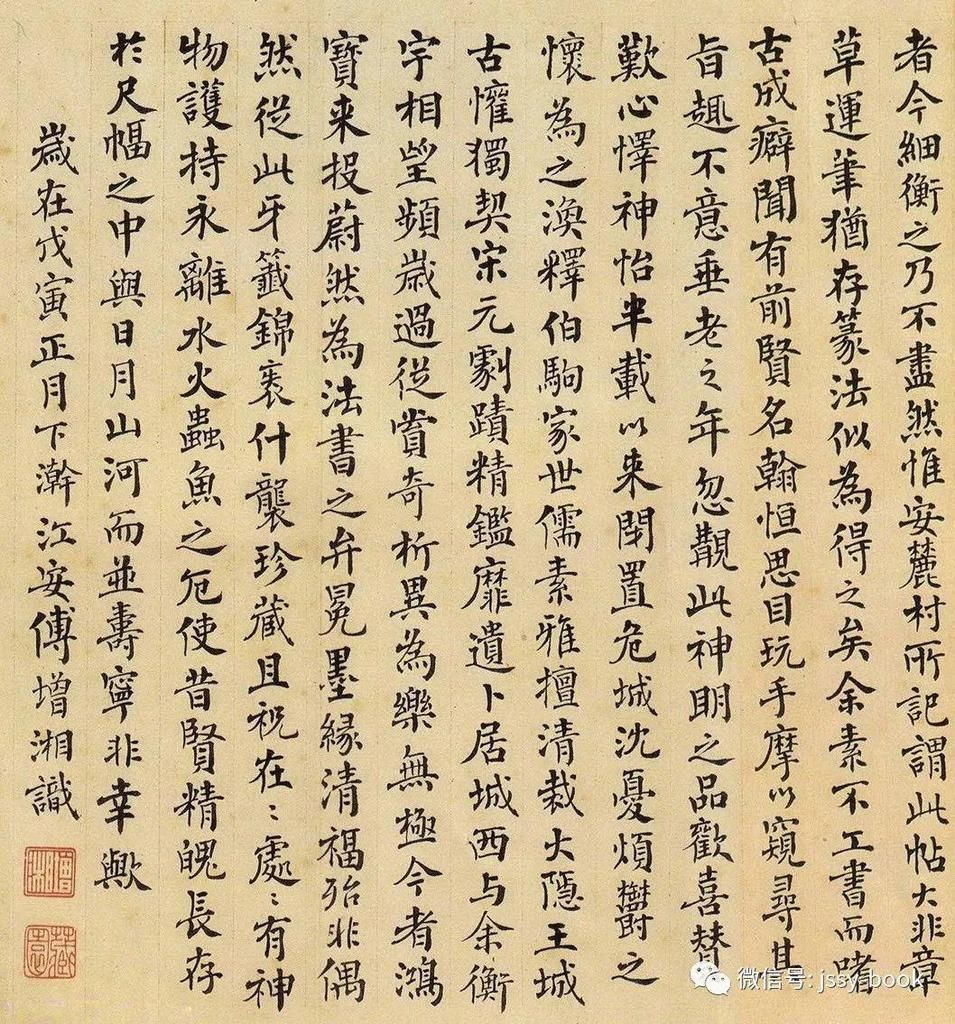 者今細衡之乃不盡然惟安麓村所記謂此帖大非章
草運筆猶存篆法似為得之矣余素不工書而嗜
古成癖聞有前賢名翰恒思目玩手摩以窺尋其
旨趣不意垂老之年忽覩此神明之品歡喜贊
歎心懌神怡半載以来閉置危城沈憂煩鬱之
懷為之渙釋伯駒家世儒素雅擅清裁大隱王城
古懽獨契宋元劇蹟精鑑靡遺卜居城西与余衡
宇相望頻歲過從賞奇析異為樂無極今者鴻
寶来投蔚然為法書之弁冕墨緣清福殆非偶
然從此牙籤錦裹什襲珍藏且祝在〻處〻有神
物護持永離水火蟲魚之厄使昔賢精魄長存
於尺幅之中與日月山河而並壽寧非幸歟
歲在戊寅正月下澣江安傅增湘識
增湘
藏園
微信号: jssy-book